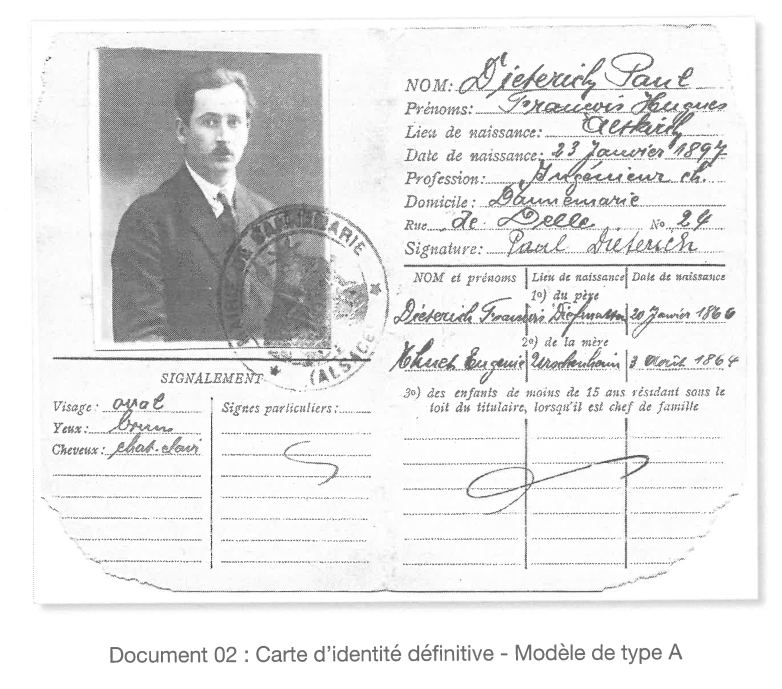 NOM: Dieterich Paul
Prénoms: François Hugues
Lieu de naissance: Altkirch
Date de naissance: 23 Janvier 1897
Profession: Ingénieur ch.
Domicile: Dannemarie
Rue de Delle No 24
Signature: Paul Dieterich
NOM et prénoms Lieu de naissance Date de naissance
1o) du père
Dieterich François Diefmatten 20 Janvier 1866
2o) de la mère
Eugénie 3 Août 1864
3o) des enfants de moins de 15 ans résidant sous le
toit du titulaire, lorsqu'il est chef de famille
MAIRIE DE DANNEMARIE
(ALSACE)
SIGNALEMENT
Visage: oval
Yeux: bruns
Cheveux: chat-clair
Signes particuliers:
Document 02 : Carte d'identité définitive - Modèle de type A